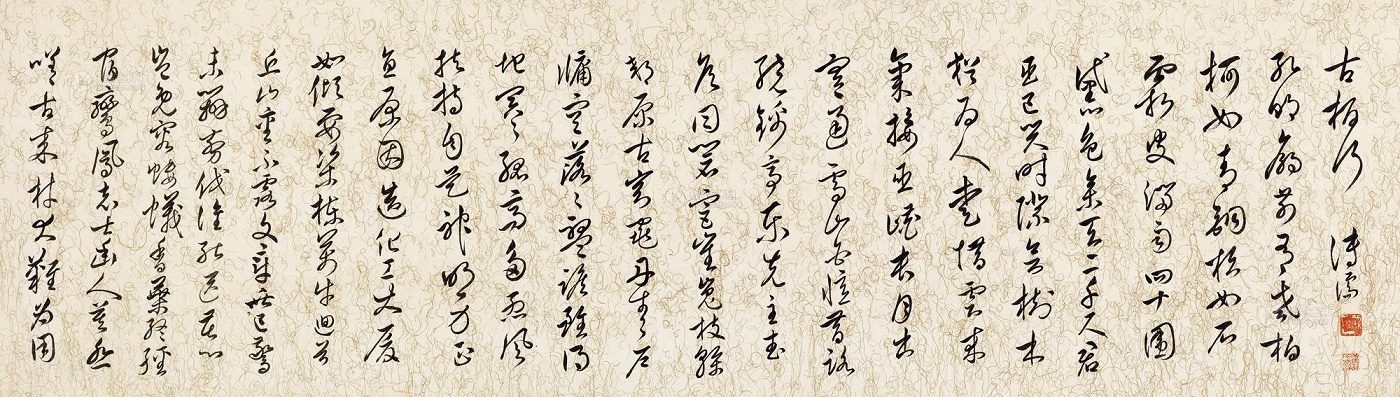 古柏行 溥儒
孔明廟前有老柏
柯如青銅根如石
霜皮溜雨四十圍
黛色參天二千尺君
臣已與時際會樹木
猶為人愛惜雲來
氣接巫峽長月出
寒通雪山白憶昔路
繞錦亭東先主武
侯同閟宮崔嵬枝幹
郊原古窈窕丹青戶
牖空落々盤踞雖得
地冥々孤高多烈風
扶持自是神明力正
直原因造化工大廈
如傾要梁棟萬牛迴首
丘山重不露文章世已驚
未辭剪伐誰能送苦心
豈免容螻蟻香葉終經
宿鸞鳳志士幽人莫怨
嗟古來材大難為用